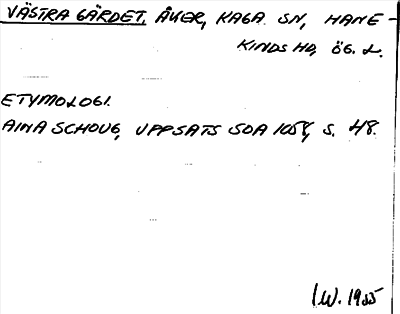 VÄSTRA GÄRDET, ÅKER, KAGA SN, HANE-
KINDS HD, ÖG. L.
ETYMOLOGI.
AINA SCHOUG, UPPSATS SOA 1058, S. 48.
I.W. 1985